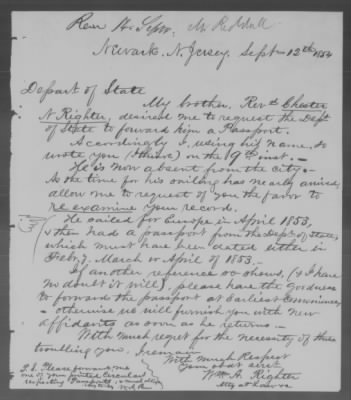 Newark N. Jersey. Sept 12th 1854
Depart of State
My brother, Revd Chester
N Righter, desired me to request the Dept
of State to forward him a Passport.
Accordingly I, using his name, so
wrote you (I think) on the 19th inst. —
He is now absent from the city. —
As the time for his sailing has nearly arrived
allow me to request of you the favor to
re examine your record.
He sailed for Europe in April 1853,
& then had a passport from the Dept. of State,
which must have been dated either in
Feb'y. March or April of 1853. —
If another reference so shows, (& I have
no doubt it will), please have the goodness
to forward the passport at Earliest Convenience,
— otherwise we will furnish you with new
affidavits as soon as he returns —
With much regret for the necessity of thus
troubling you, I remain
With much Respect
Your obdt servt
Wm A. Righter
Atty at Law &c
P.S. Please forward me
one of your printed Circulars
respecting Passports,